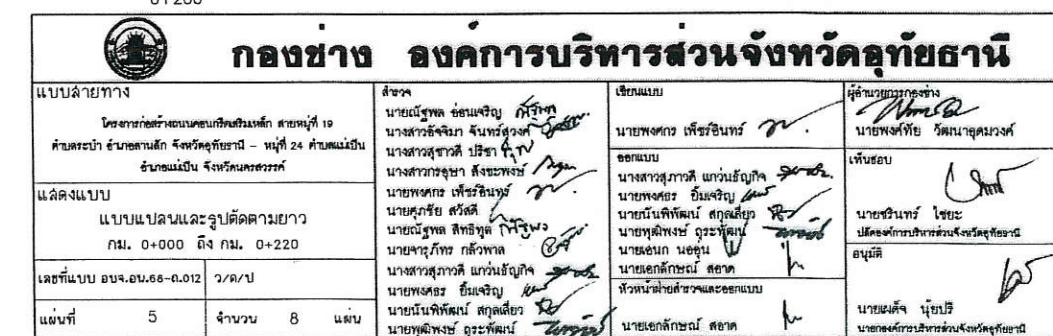 กองช่าง องค์การบริหารส่วนจังหวัดอุทัยธานี
แบบสายทาง
โครงการก่อสร้างถนนคอนกรีตเสริมเหล็ก สายหมู่ที่ 19
ตำบลระบำ อำเภอลานสัก จังหวัดอุทัยธานี - หมู่ที่ 24 ตำบลแม่เปิน
อำเภอแม่เปิน จังหวัดนครสวรรค์
แสดงแบบ
แบบแปลนและรูปตัดตามยาว
กม. 0+000 ถึง กม. 0+220
เลขที่แบบ อบจ.อน.66-ถ.012 ว/ด/ป
แผ่นที่ 5 จำนวน 8 แผ่น
สำรวจ
นายณัฐพล อ่อนเจริญ
นางสาวอัจจิมา จันทร์สุวงค์
นางสาวสุชาวดี ปรีชา
นางสาวกรอุษา สังขะพงษ์
นายพงศกร เพ็ชร์อินทร์
นายศุภชัย สวัสดี
นายณัฐพล สิทธิทูต
นายจารุภัทร กล้าพาล
นางสาวสุภาวดี แก่วนธัญกิจ
นายพงศธร ยิ้มเจริญ
นายนันพิพัฒน์ สกุลเสี่ยว
นายพุฒิพงษ์ ถุระพัฒน์
เขียนแบบ
นายพงศกร เพ็ชร์อินทร์
ออกแบบ
นางสาวสุภาวดี แก่วนธัญกิจ
นายพงศธร ยิ้มเจริญ
นายนันพิพัฒน์ สกุลเสี่ยว
นายพุฒิพงษ์ ถุระพัฒน์
นายเอนก นออุ่น
นายเอกลักษณ์ สอาด
หัวหน้าฝ่ายสำรวจและออกแบบ
นายเอกลักษณ์ สอาด
ผู้อำนวยการกองช่าง
นายพงศ์ทัย วัฒนาอุดมวงศ์
เห็นชอบ
นายชรินทร์ ไชยะ
ปลัดองค์การบริหารส่วนจังหวัดอุทัยธานี
อนุมัติ
นายเผด็จ นุ้ยปรี
นายกองค์การบริหารส่วนจังหวัดอุทัยธานี